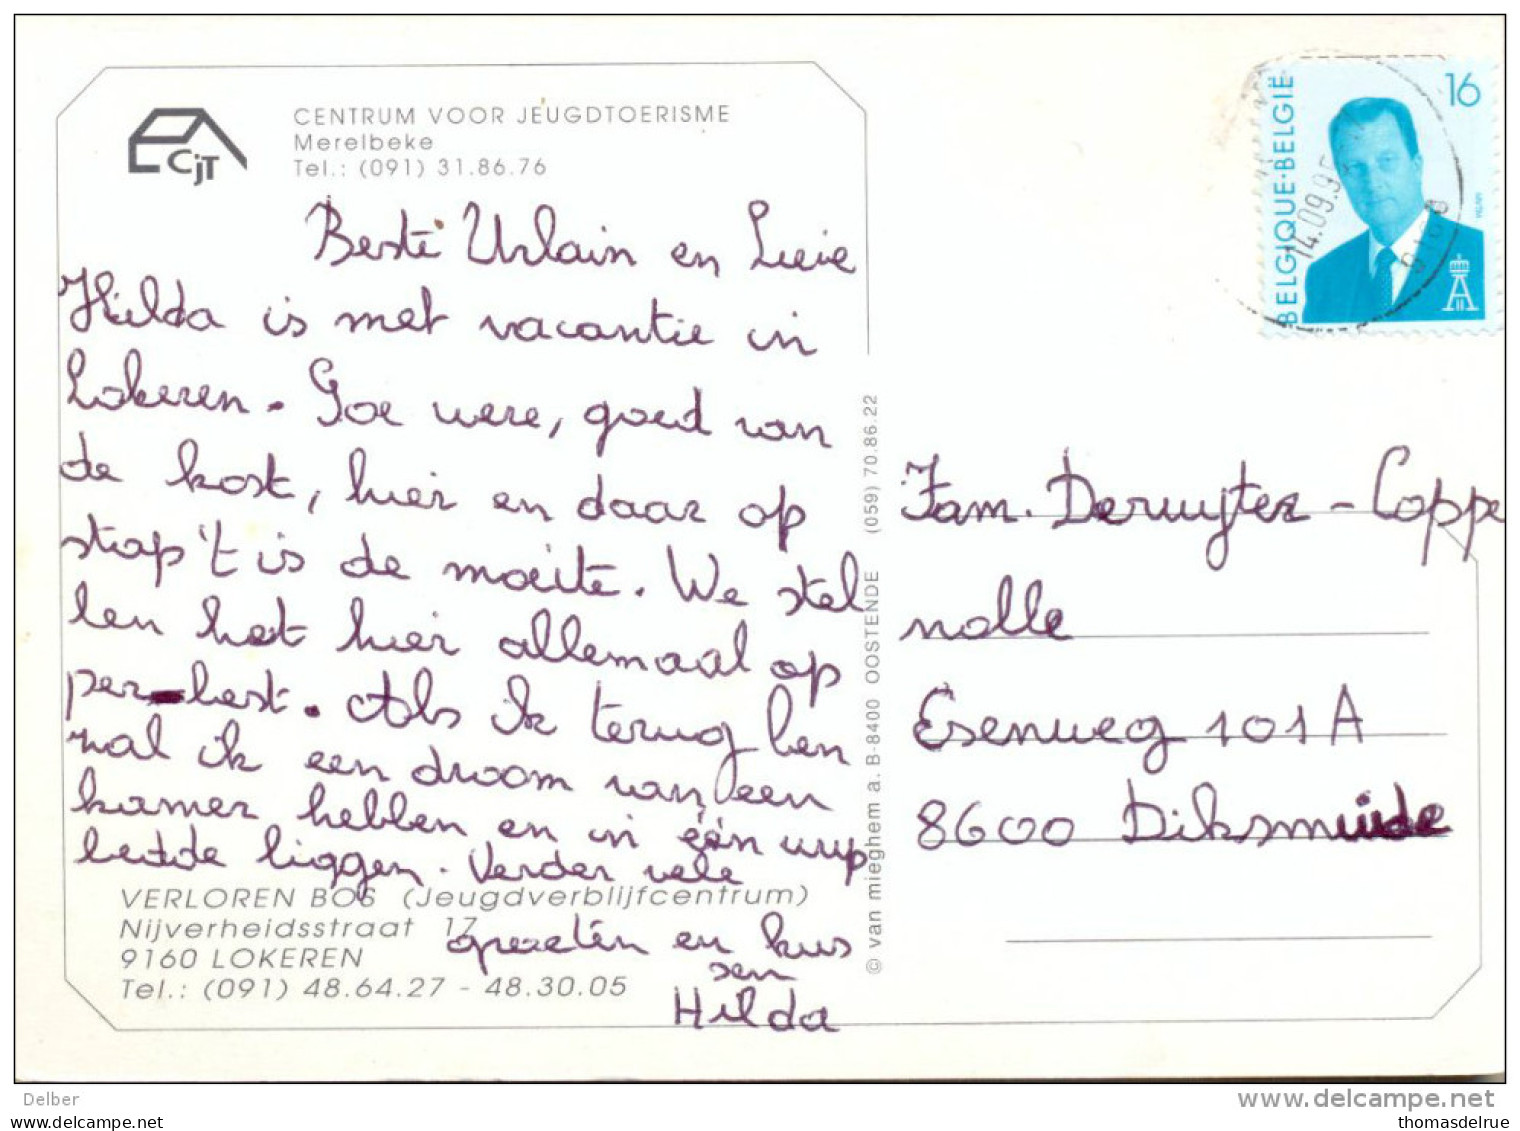 CENTRUM VOOR JEUGDTOERISME
Merelbeke
Tel.: (091) 31.86.76
CjT
Beste Urlain en Lieie
Hilda is met vacantie in
Lokeren. Goe were, goed van
de kost, hier en daar op
stap 't is de moeite. We stel
len het hier allemaal op
per best. Als ik terug ben
zal ik een droom van een
kamer hebben en in één wup
bedde liggen. Verder vele
groetén en kus
sen
Hilda
VERLOREN BOS (Jeugdverblijfcentrum)
Nijverheidsstraat 17
9160 LOKEREN
Tel.: (091) 48.64.27 - 48.30.05
© van mieghem a. B-8400 OOSTENDE (059) 70.86.22
BELGIQUE·BELGIË
16
14.09.95
9160
Fam. Deruyter - Coppe
nolle
Esenweg 101A
8600 Diksmuide
Delber
www.delcampe.net
www.delcampe.net
thomasdelrue